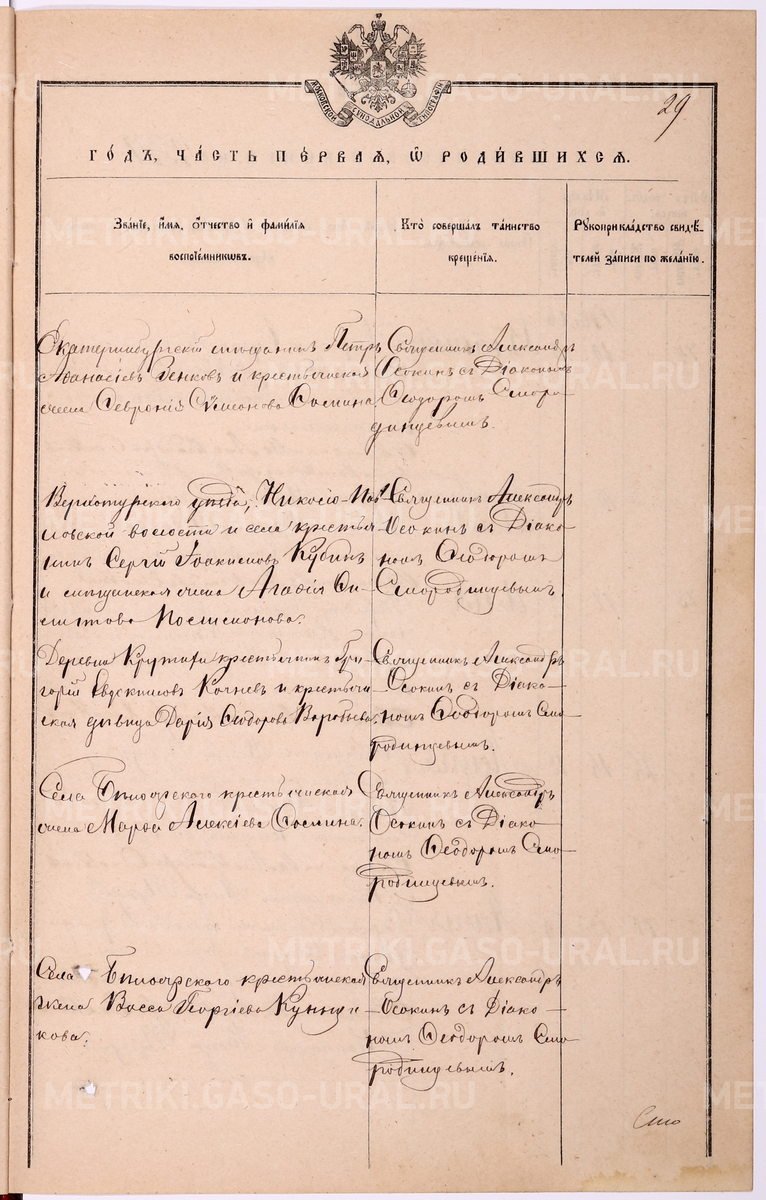 29
МОСКОВСКОЙ СѴНОДАЛЬНОЙ ТИПОГРАФІИ
ГОДЪ, ЧАСТЬ ПЕРВАЯ, Ѡ РОДИВШИХСЯ.
Званіе, имя, отчество и фамилія
воспріемниковъ.
Кто совершалъ таинство
крещенія.
Рукоприкладство свидѣ-
телей записи по желанію.
Екатеринбургскій мѣщанинъ Петръ
Аѳанасіевъ и крестьянская
Февронія Сомина
Священникъ Александръ
Осокинъ съ Діакономъ
Ѳеодоромъ Сморо-
динцевымъ.
Верхотурскаго уѣзда, Николае-Пав-
ловской волости и села крестья-
нинъ Сергій Іоакимовъ Кубинъ
и мѣщанская Агафія
Священникъ Александръ
Осокинъ съ Діако-
номъ Ѳеодоромъ
Смородинцевымъ.
Деревни крестьянинъ Гри-
горій Кочневъ и крестьян-
ская дѣвица Дарія Ѳеодорова Воробьева.
Священникъ Александръ
Осокинъ съ Діако-
номъ Ѳеодоромъ Смо-
родинцевымъ.
Села крестьянская
Марѳа Алексіева Сомина.
Священникъ Александръ
Осокинъ съ Діако-
номъ Ѳеодоромъ Смо-
родинцевымъ.
Села крестьянская
жена Васса Георгіева
кова.
Священникъ Александръ
Осокинъ съ Діако-
номъ Ѳеодоромъ Смо-
родинцевымъ.
METRIKI.GASO-URAL.RU